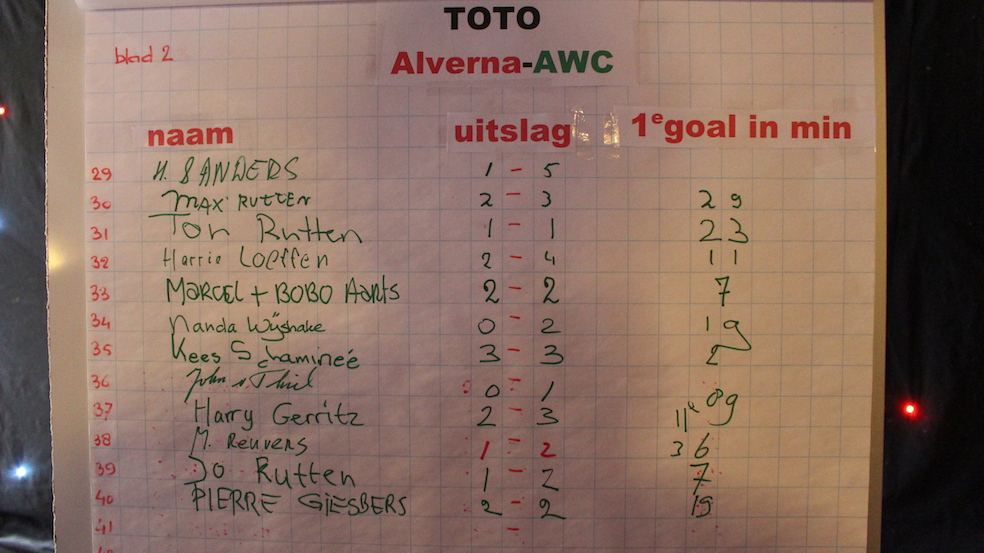 TOTO
blad 2
Alverna-AWC
naam uitslag 1e goal in min
29 H. SANDERS 1 - 5
30 MAX RUTTEN 2 - 3 29
31 Ton Rutten 1 - 1 23
32 Harrie Loeffen 2 - 4 11
33 MARCEL + BOBO Aarts 2 - 2 7
34 Nanda Wijshake 0 - 2 19
35 Kees Schamineé 3 - 3 2
36 John v Thiel 0 - 1 89
37 Harry Gerritz 2 - 3 11e
38 M. Reuvers 1 - 2 36
39 Jo Rutten 1 - 2 7
40 PIERRE GIESBERS 2 - 2 19
41 -